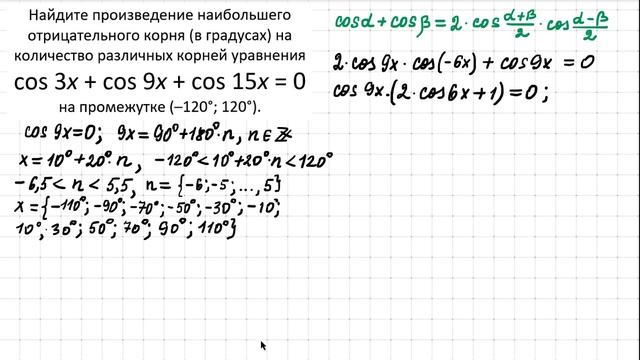 Найдите произведение наибольшего
отрицательного корня (в градусах) на
количество различных корней уравнения
cos 3x + cos 9x + cos 15x = 0
на промежутке (–120°; 120°).
cosα + cosβ = 2 · cos (α+β)/2 · cos (α-β)/2
2·cos 9x · cos(-6x) + cos9x = 0
cos 9x·(2·cos6x+1)=0 ;
cos 9x=0; 9x=90°+180°·n, n∈Z
x=10°+20°·n, -120°<10°+20°·n<120°
-6,5< n < 5,5, n={-6;-5;...,5}
x={-110°;-90°;-70°;-50°;-30°;-10;
10°; 30°; 50°; 70°; 90°; 110°}